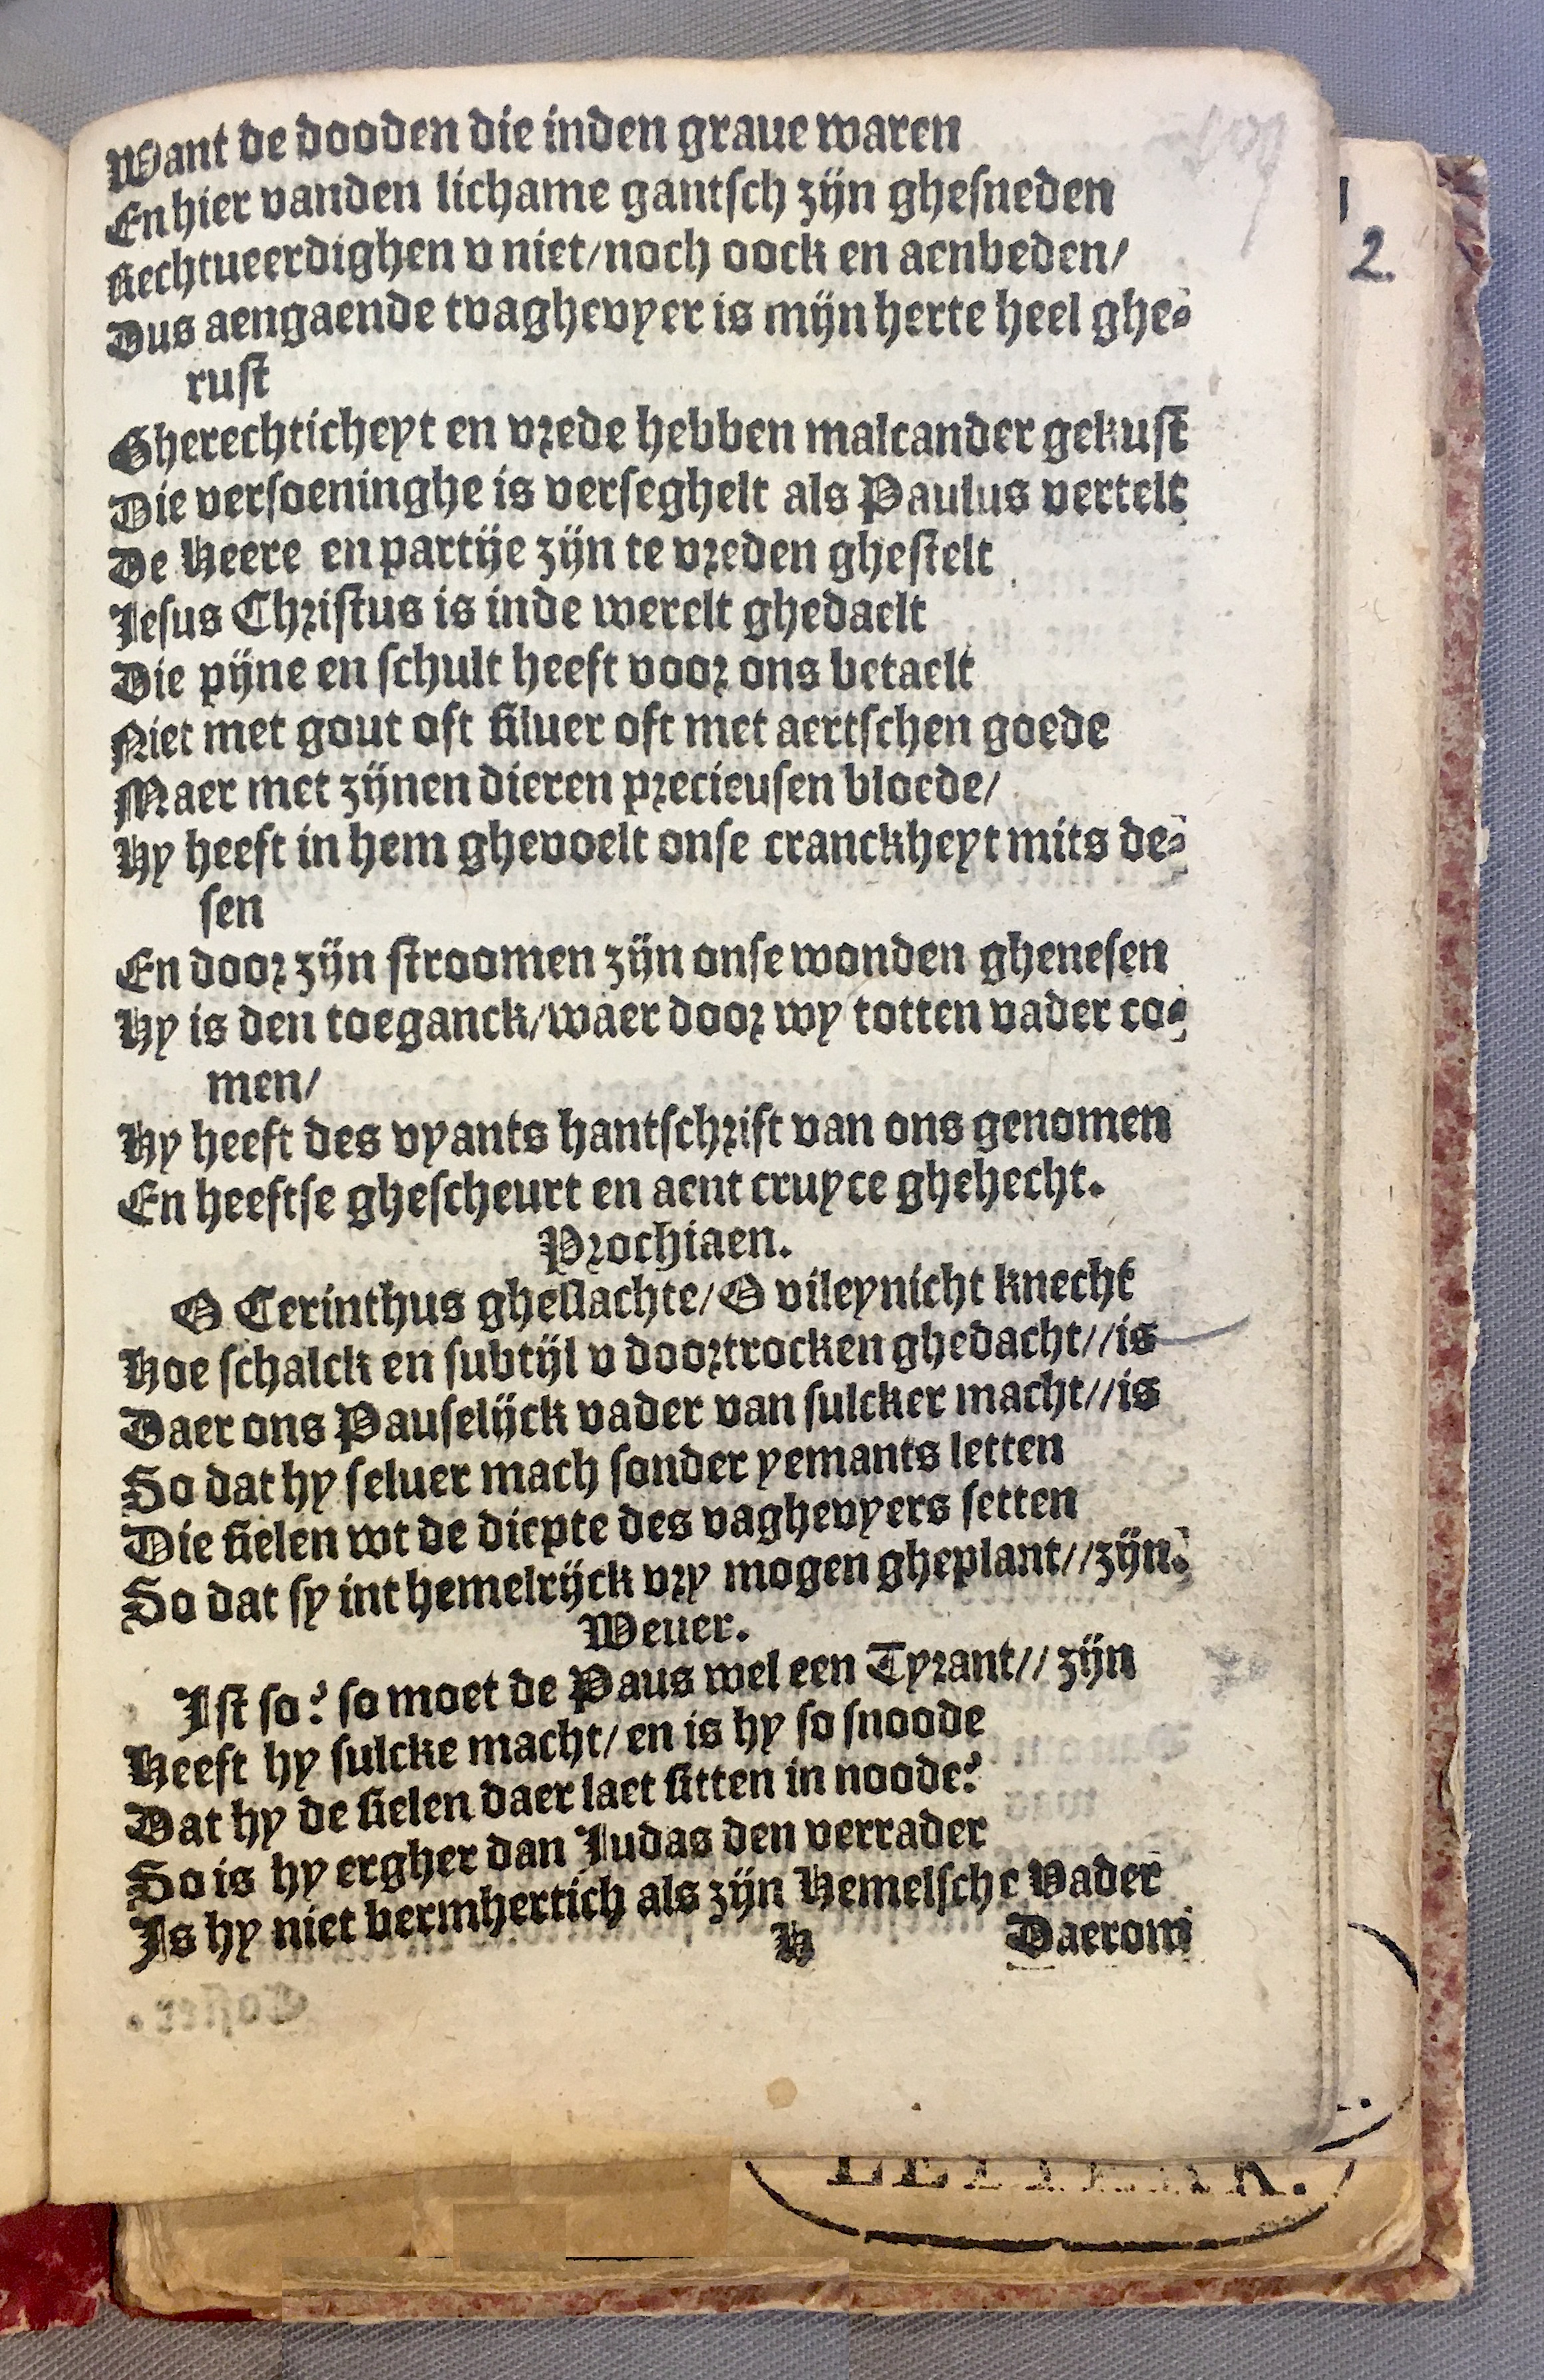 Want de dooden die inden graue waren
En hier vanden lichame gantsch zijn ghesneden
Rechtueerdighen v niet/noch oock en aenbeden/
Dus aengaende tvaghevyer is mijn herte heel ghe-
rust
Gherechticheyt en vrede hebben malcander gekust
Die versoeninghe is verseghelt als Paulus vertelt
De Heere en partije zijn te vreden ghestelt
Jesus Christus is inde werelt ghedaelt
Die pijne en schult heeft voor ons betaelt
Niet met gout oft siluer oft met aertschen goede
Maer met zijnen dieren precieusen bloede/
Hy heeft in hem ghevoelt onse cranckheyt mits de-
sen
En door zijn stroomen zijn onse wonden ghenesen
Hy is den toeganck/waer door wy totten vader co-
men/
Hy heeft des vyants hantschrift van ons genomen
En heeftse ghescheurt en aent cruyce ghehecht.
Prochiaen.
O Cerinthus gheslachte/O vileynicht knecht
Hoe schalck en subtijl v doortrocken ghedacht//is
Daer ons Pauselijck vader van sulcker macht//is
So dat hy seluer mach sonder yemants letten
Die sielen wt de diepte des vaghevyers setten
So dat sy int hemelrijck vry mogen gheplant//zijn.
Weuer.
Ist so? so moet de Paus wel een Tyrant// zijn
Heeft hy sulcke macht/ en is hy so snoode
Dat hy de sielen daer laet sitten in noode?
So is hy ergher dan Judas den verrader
Is hy niet bermhertich als zijn Hemelsche Vader
H Daerom
2.